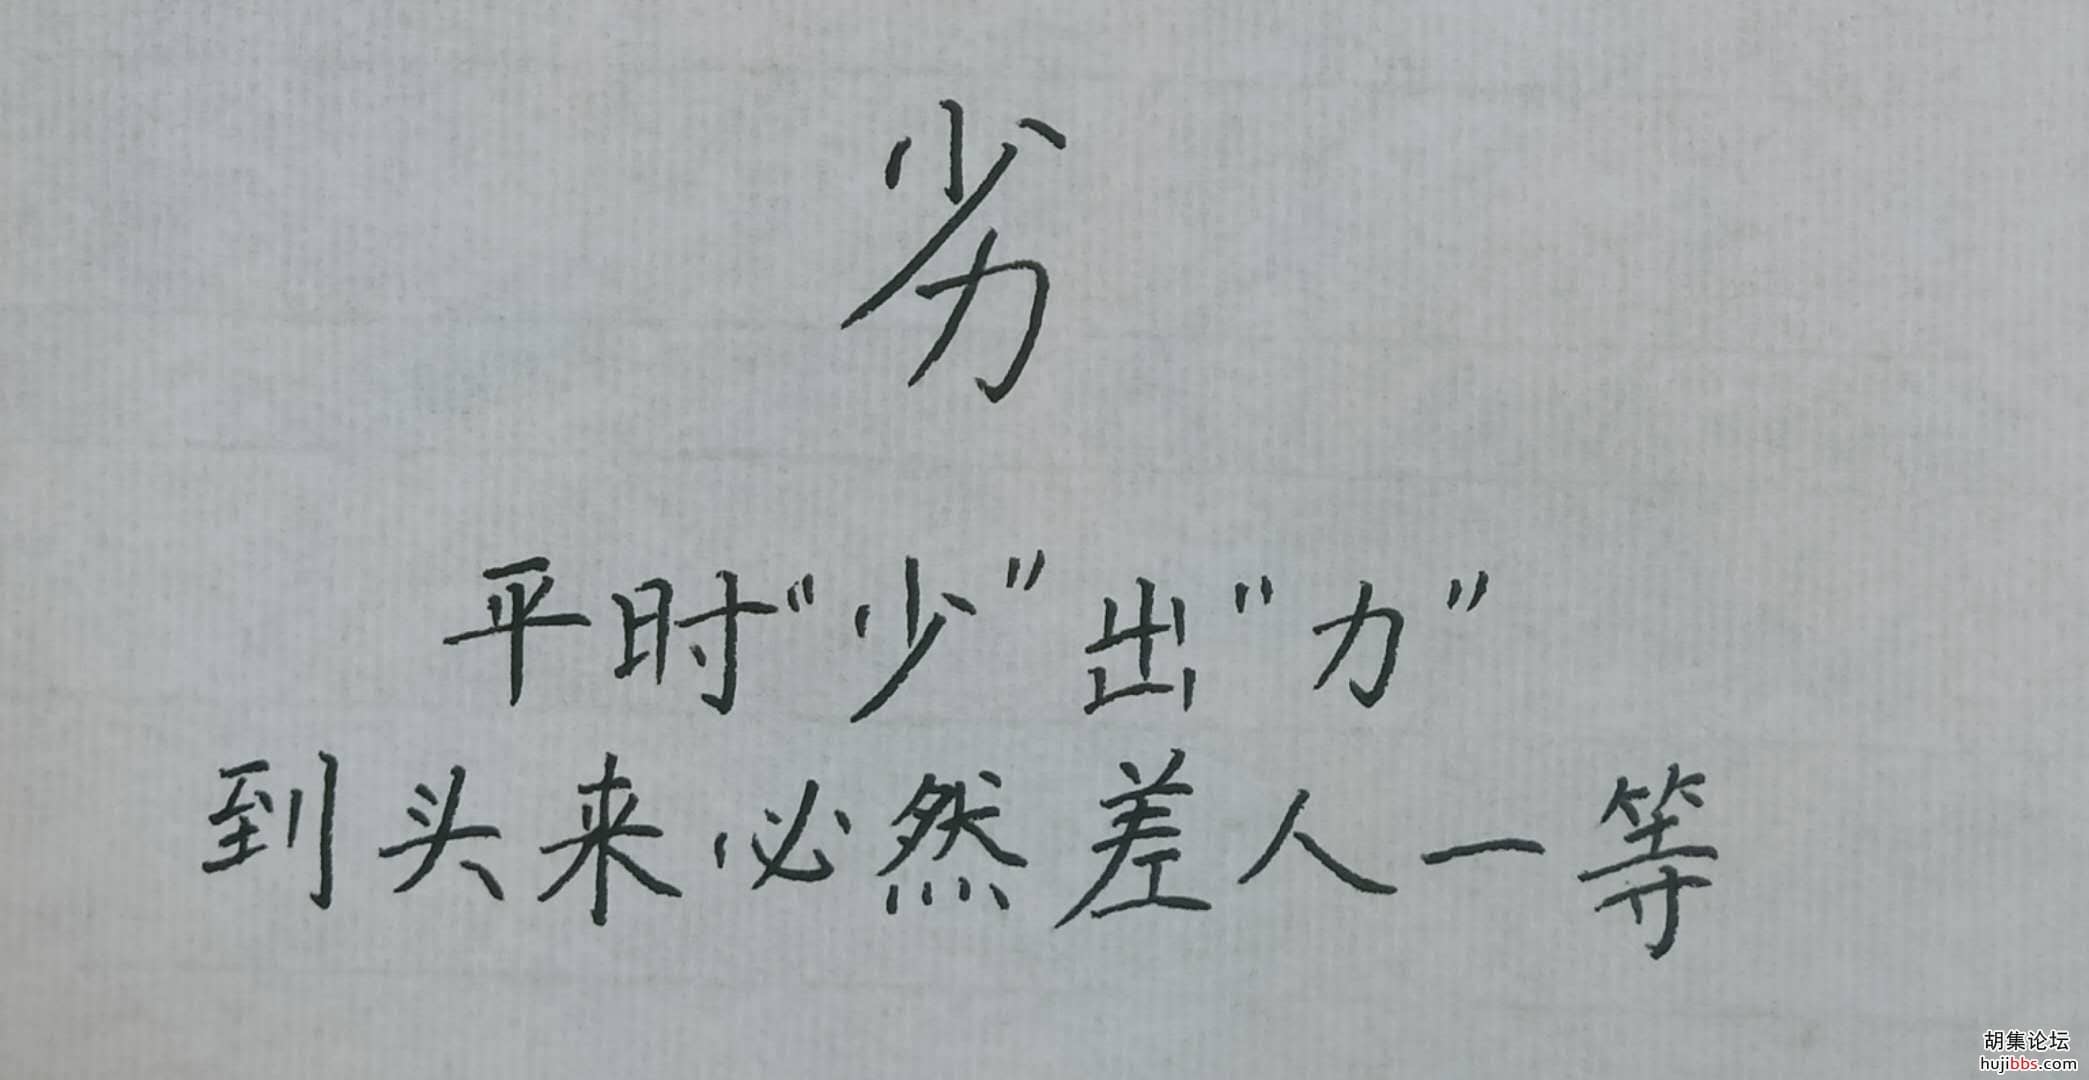 劣
平时“少”出“力”
到头来必然差人一等
胡集论坛
hujibbs.com